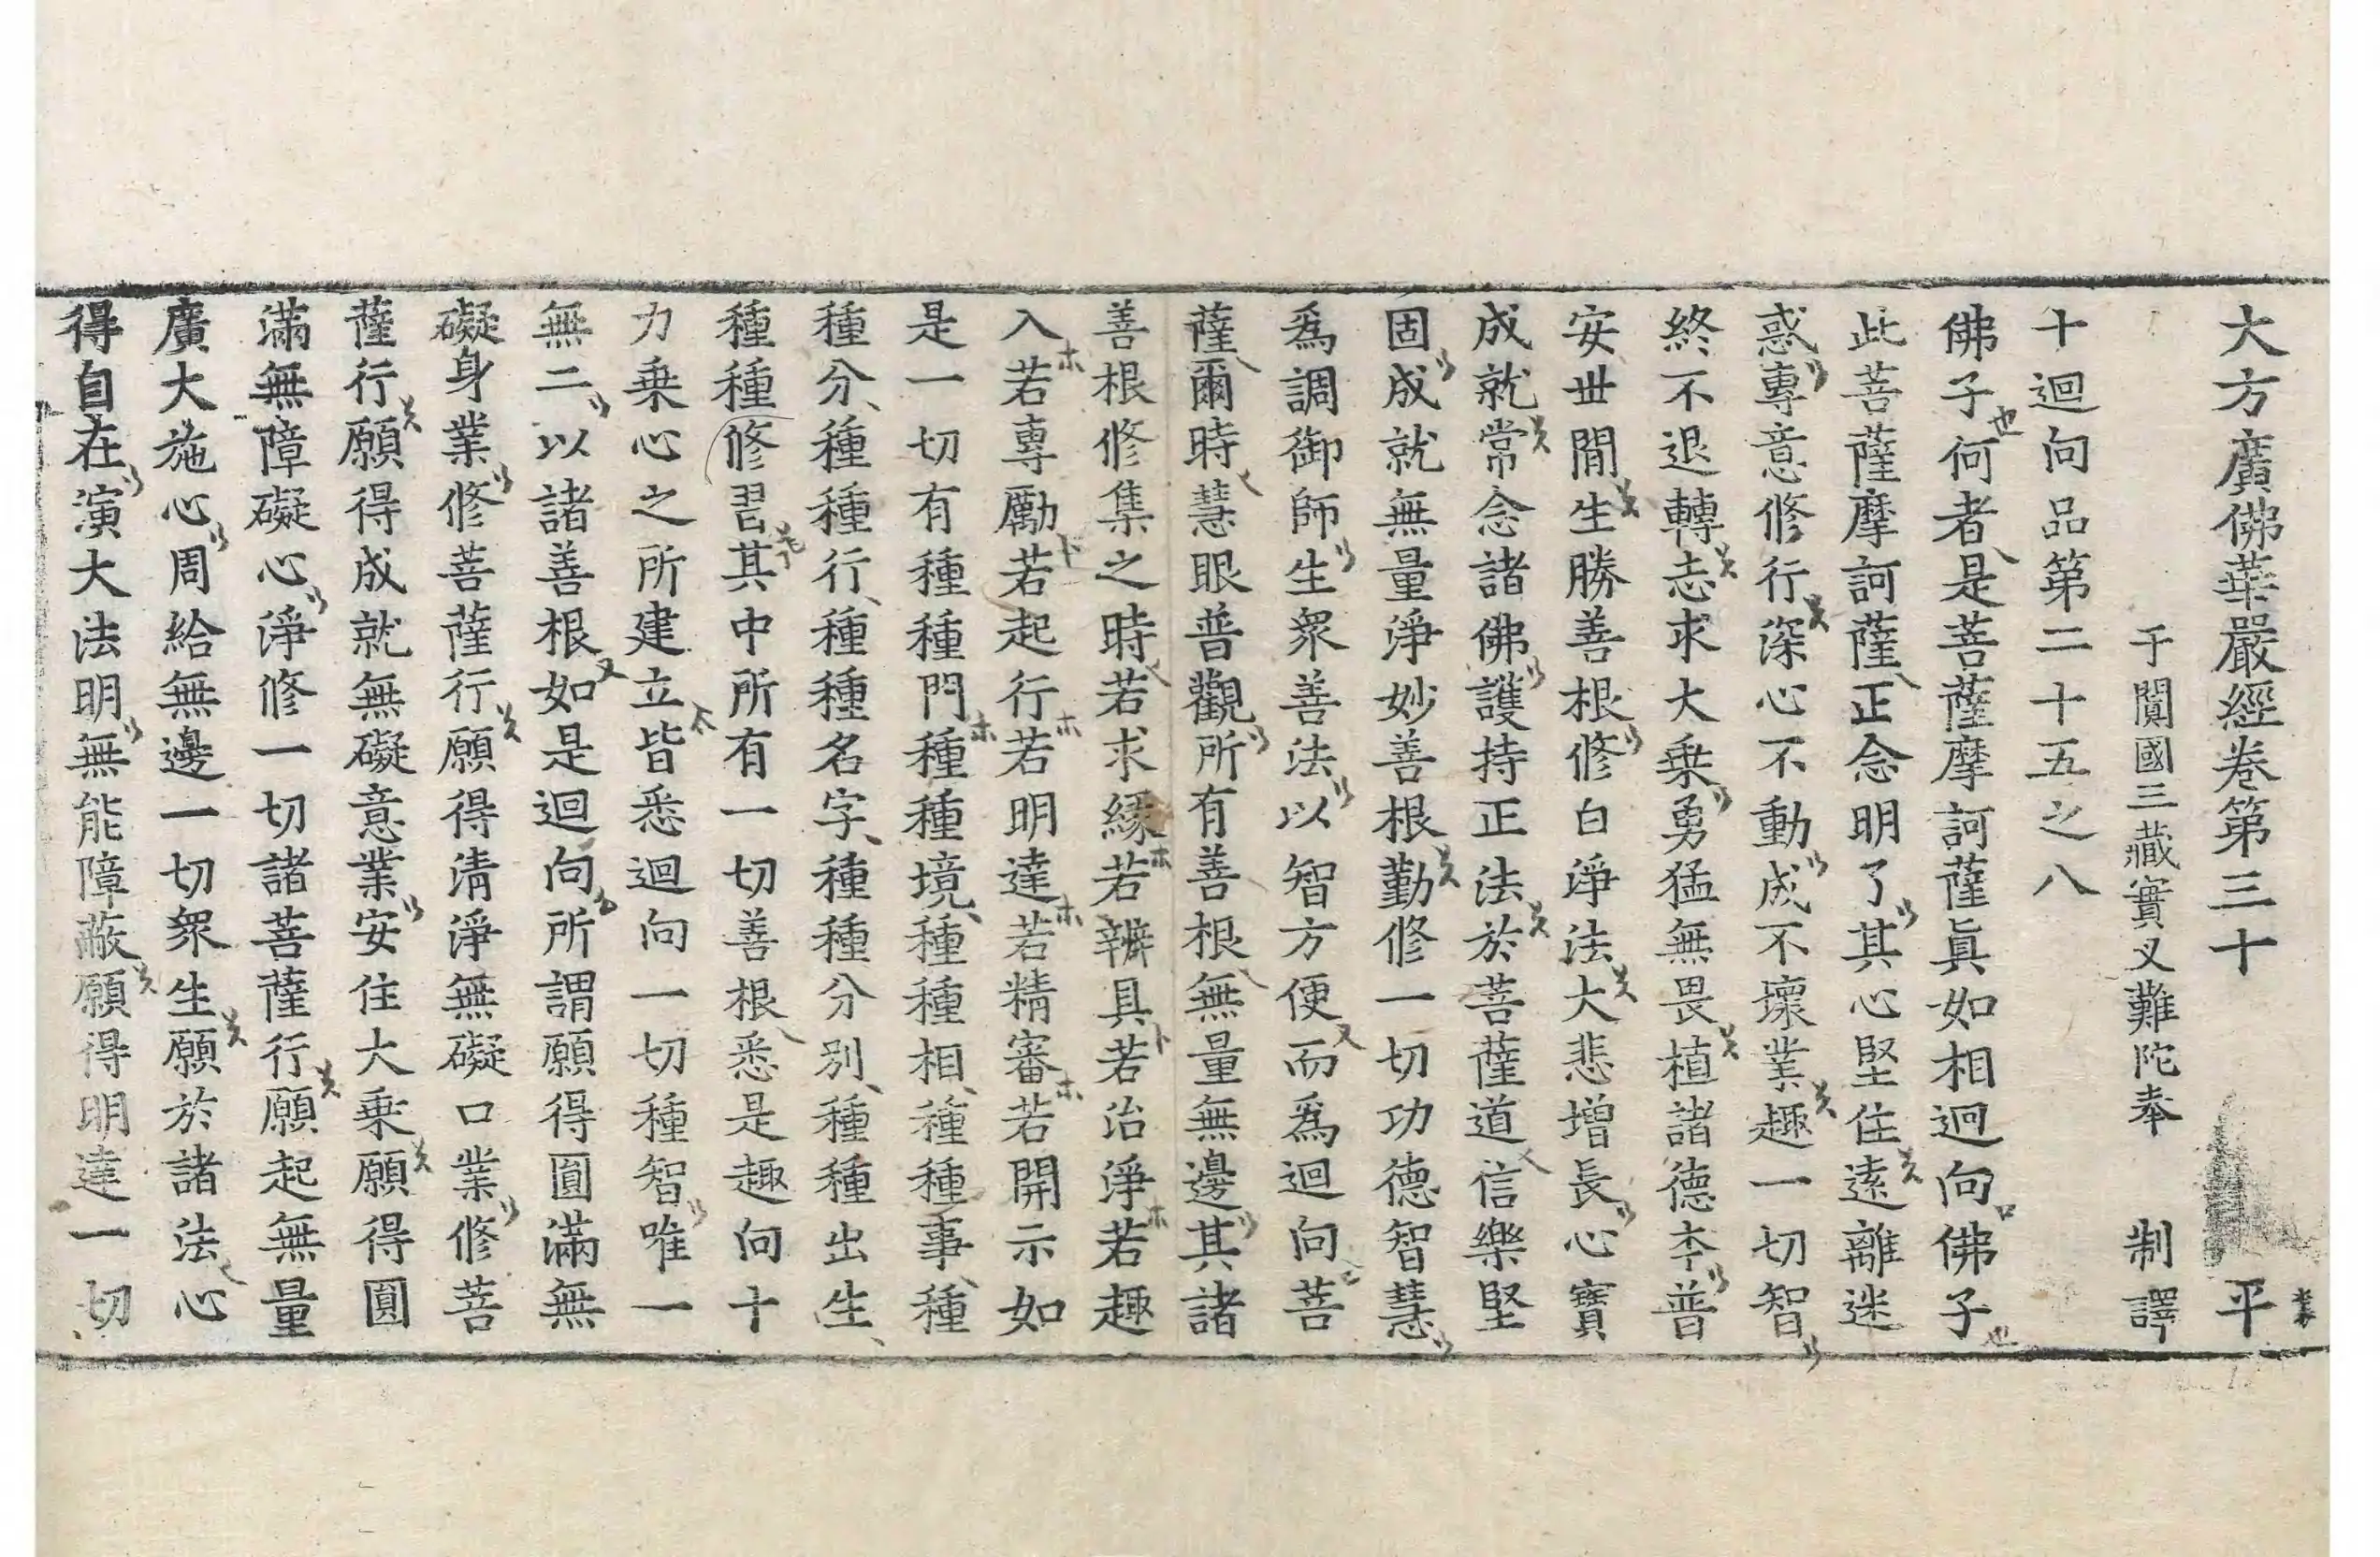 大方廣佛華嚴經卷第三十 平
于闐國三藏實叉難陁奉 制譯
十迴向品第二十五之八
佛子何者是菩薩摩訶薩眞如相迴向佛子
此菩薩摩訶薩正念明了其心堅住遠離迷
惑專意修行深心不動成不壞業趣一切智
終不退轉志求大乗勇猛無畏植諸德夲普
安丗閒生勝善根修白淨法大悲增長心寶
成就常念諸佛護持正法於菩薩道信樂堅
固成就無量淨妙善根勤修一切功德智慧
爲調御師生衆善法以智方便而爲迴向菩
薩爾時慧眼普觀所有善根無量無邊其諸
善根修集之時若求緣若辦具若治淨若趣
入若專勵若起行若明達若精審若開示如
是一切有種種門種種境種種相種種事種
種分種種行種種名字種種分別種種出生
種種修習其中所有一切善根悉是趣向十
力乗心之所建立皆悉迴向一切種智唯一
無二以諸善根如是迴向所謂願得圓滿無
礙身業修菩薩行願得清淨無礙口業修菩
薩行願得成就無礙意業安住大乗願得圓
滿無障礙心淨修一切諸菩薩行願起無量
廣大施心周給無邊一切衆生願於諸法心
得自在演大法明無能障蔽願得明達一切